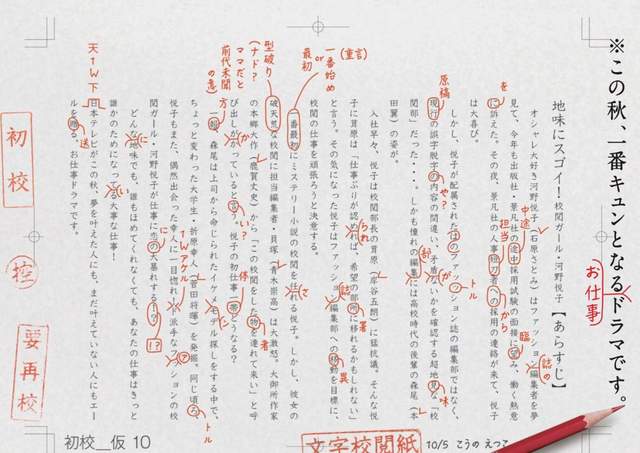 ※この秋、一番キュンとなるドラマです。
お仕事
地味にスゴイ！校閲ガール・河野悦子【あらすじ】
オシャレ大好き河野悦子（石原さとみ）はファッション編集者を夢
見て、今年も出版社・景凡社の途中採用試験の面接に望み、働く熱意
に訴えた。その夜、景凡社の人事短刀者への採用の連絡が来て、悦子
は大喜び。
しかし、悦子が配属された
のファッション誌の編集部ではなく、
現行の誤字脱字の内容の間違い、矛盾
ないかを確認する超地見な「校
閲部」だった・・。しかも憧れの編集
には高校時代の後輩の森尾（本
田翼）の姿が。
入社早々、悦子は校閲部長の茸原（岸谷五朗）に猛抗議。そんな悦
子に茸原は「仕事ぶりが認め
れば、希望の部
に移れるかもしれない」
と言う。その気になった悦子はファッション編集部への移動を目標に、
校閲の仕事を頑張ろうと決意する。
一番最初にミステリー小説の校閲を
れる悦子。しかし、彼女の
破天荒な校閲に担当編集者・貝塚（青木崇高）は大激怒。大御所作家
の本郷大作（鹿賀丈史）から「この校閲をした物を連れて来い」と呼
び出しがかっていると言う。悦子の初仕事
一帯どうなる？
一超、森尾は上司から命じられたイケメモデル探しをする中で、
ちょっと変わった大学生・折原幸人（菅田将暉）を発掘。同じ頃
悦子もまた、偶然出会った幸人に一目惚れ
派手なファッションの校
閲ガール・河野悦子が仕事に恋の大暴れする
どんな地味でも、誰もほめてくれなくても、あなたの仕事はきっと
誰かのためになっている大事な仕事！
日本テレビがこの秋、夢を叶えた人にも、まだ叶えていない人にもエー
ルを贈る。お仕事ドラマです。
誌の
中途
担当
から
臨
を
原稿
（重言）
一番始め
or
最初
型破り
（ナド？
ママだと
前代未聞
の意）
天1W下
初校
控
要再校
初校＿仮 10
文字校閲紙
10/5 こうの えつこ